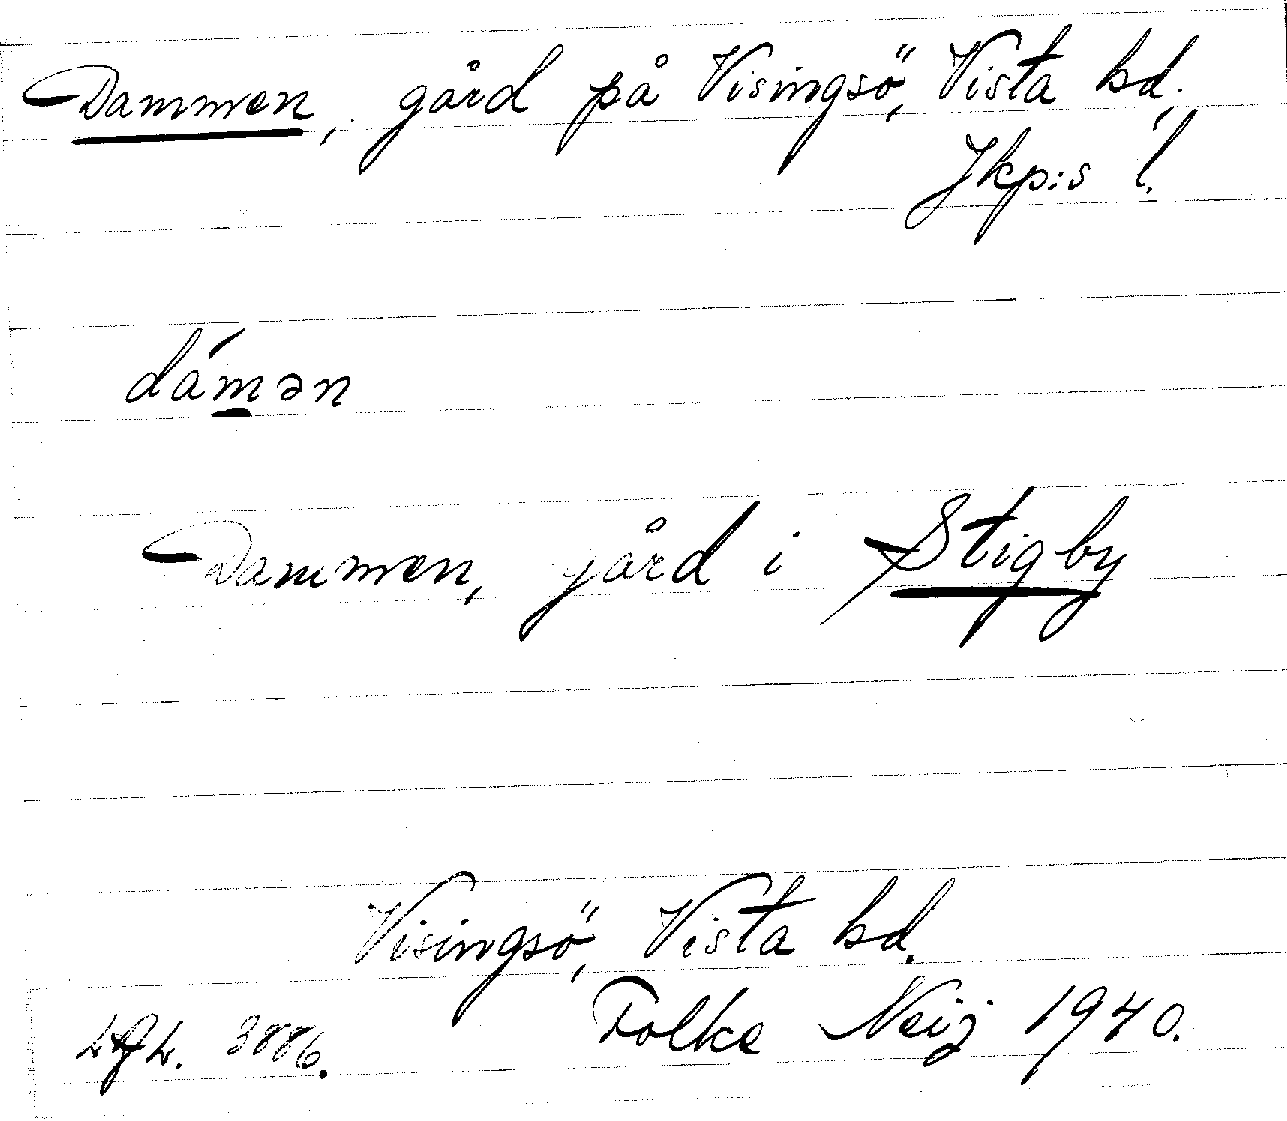 Dammen, gård på Visingsö, Vista hd,
Jkp:s l.
dámən
Dammen, gård i Stigby
Visingsö, Vista hd.
Folke Neij 1940.
3886.